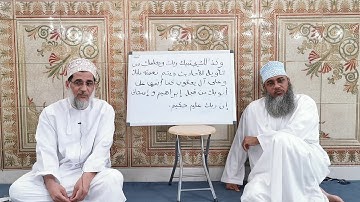 وكذلك يجتبيك ربك ويعلمك من
تأويل الأحاديث ويتم نعمته عليك
وعلى آل يعقوب كما أتمها على
أبويك من قبل إبراهيم وإسحاق
إن ربك عليم حكيم